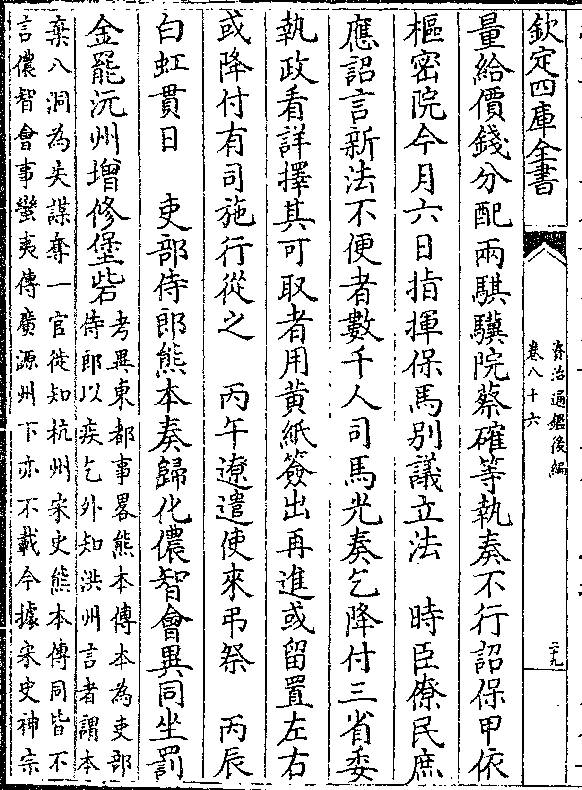 欽定四庫全書
資治通鑑後編
卷八十六
二十九
量給價錢分配兩騏驥院蔡確等執奏不行詔保甲依
樞密院今月六日指揮保馬别議立法　時臣僚民庶
應詔言新法不便者數千人司馬光奏乞降付三省委
執政看詳擇其可取者用黄紙簽出再進或留置左右
或降付有司施行從之　丙午遼遣使來弔祭　丙辰
白虹貫日　吏部侍郎熊本奏歸化儂智會異同坐罰
金罷沅州增修堡砦
考異東都事畧熊本傳本為吏部
侍郎以疾乞外知洪州言者謂本
棄八洞為失謀奪一官徙知杭州宋史熊本傳同皆不
言儂智會事蠻夷傳廣源州下亦不載今據宋史神宗